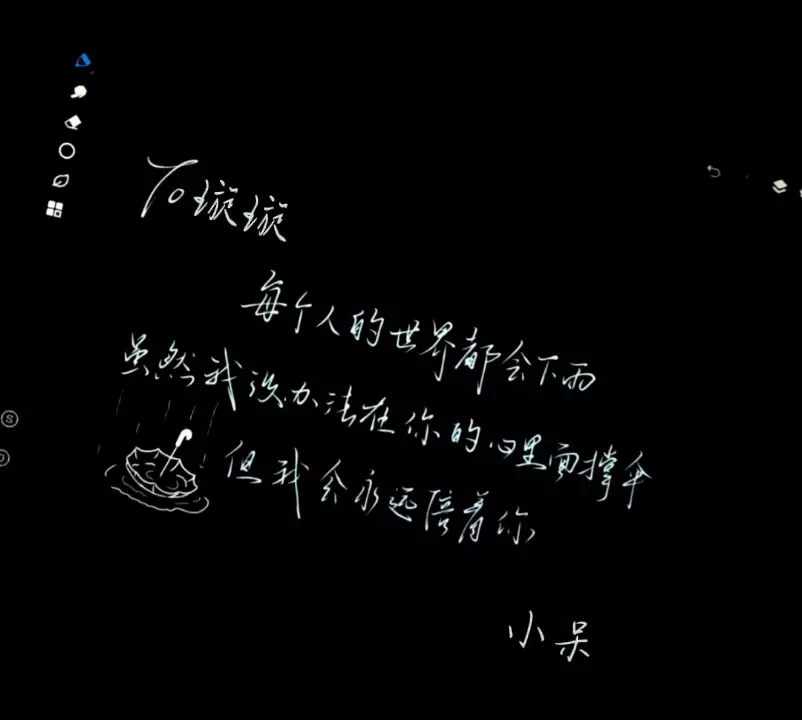 To 璇璇
每个人的世界都会下雨
虽然我没办法在你的心里面撑伞
但我会永远陪着你
小呆
S